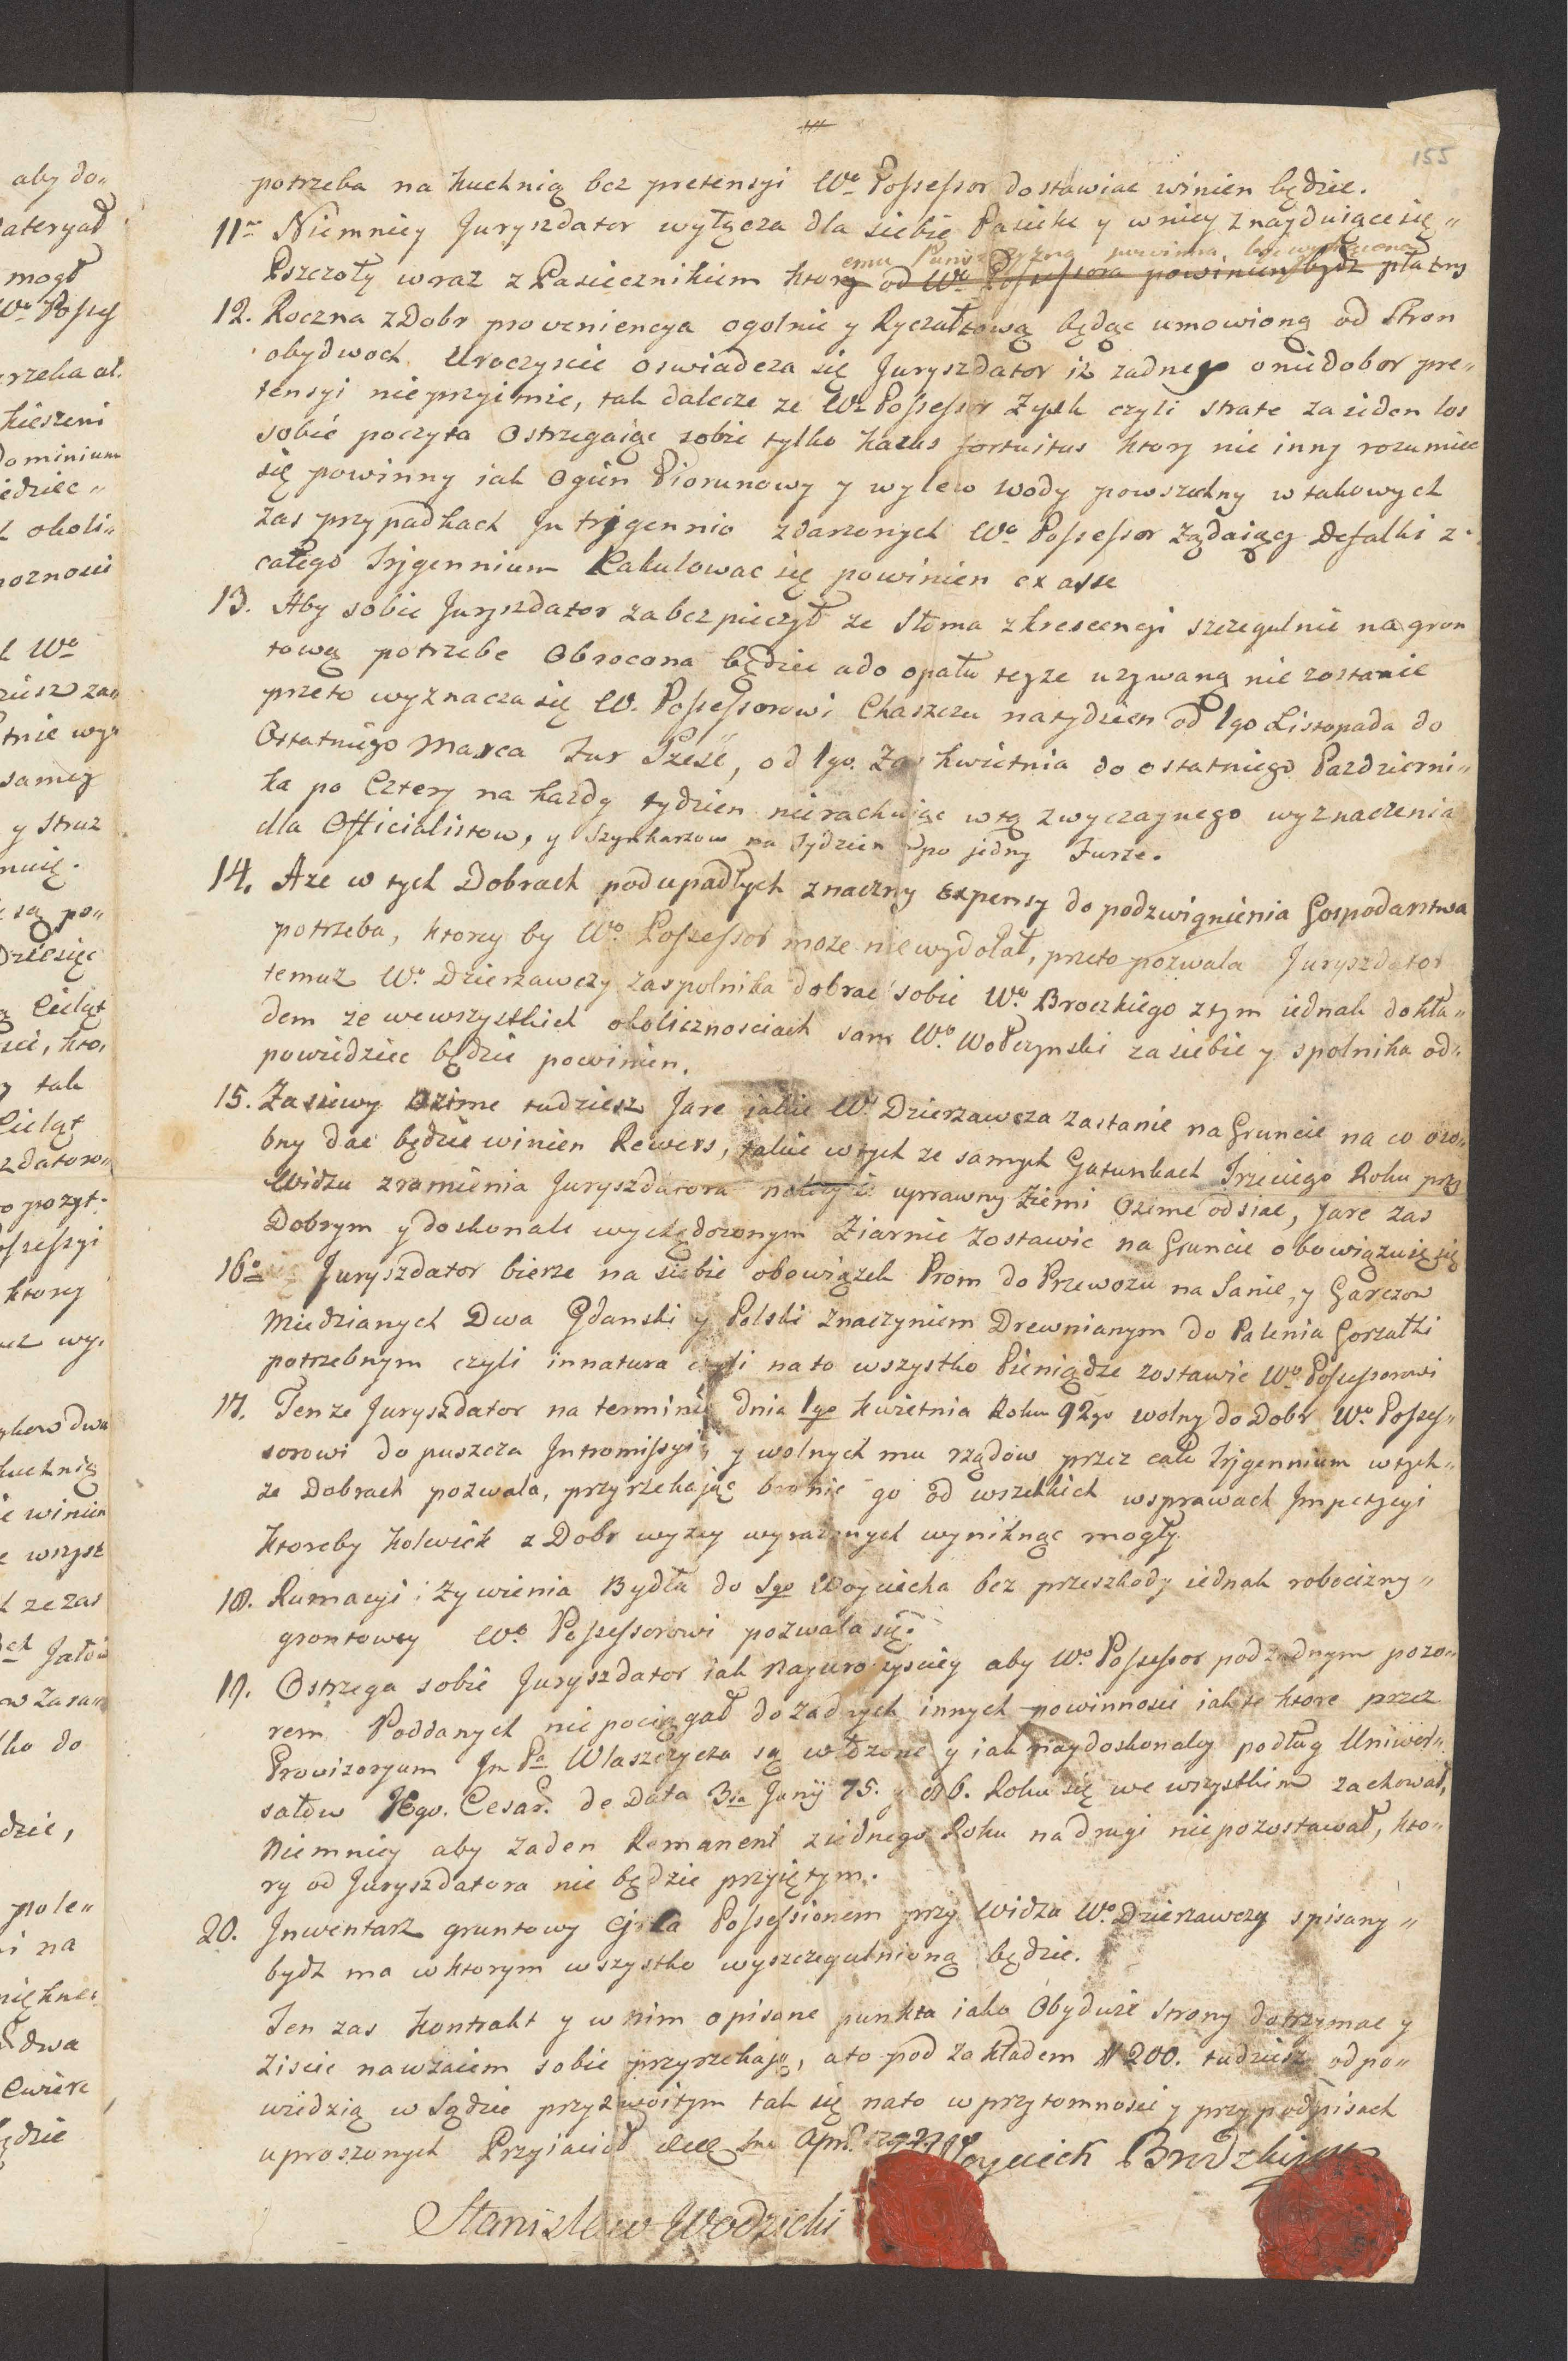 155
potrzeba na kuchnią bez pretensyi Wo Possessor dostawiac winien będzie.
11mo Niemniey Juryszdator wyłącza dla siebie Pasieke y w niey znayduiące się
emu Panszczyzna powinna bydz wytrącona
Pszczoły wraz z Pasiecznikiem ktory od Wo Possessora powinien bydz płatny
12. Roczna z Dobr proveniencya ogolnie y Ryczałtową będąc umowioną od Stron
obydwoch Uroczyscie oswiadcza się Juryszdator iz zadney o niedobor pre„
tensyi nieprzyimie, tak dalece ze Wo Possessor Zysk czyli strate za ieden los
sobie poczyta Ostrzegaiąc sobie tylko kazus fortuitus ktory nie inny rozumiec
się powinny iak Ogien Piorunowy y wylew wody powszechny w takowych
zas przypadkach In trygennio zdarzonych Wo Possessor Ządaiący Defalki z
całego Trygennium Kakulowac się powinien ex asse
13. Aby sobie Juryszdator zabezpieczył ze Słoma z krescencyi szczegulnie na gron
tową potrzebe Obrocona będzie a do opału teyze uzywaną nie zostanie
przeto wyznacza się W. Possessorowi Chaszczu na tydzien od 1go Listopada do
Ostatniego Marca Fur Szesc, od 1go. Zas kwietnia do ostatniego Pazdzierni„
ka po Cztery na kazdy tydzien nierachuiąc w tą zwyczaynego wyznaczenia
dla Officialistow, y Szynkarzow na Tydzien po jedny Furze.
14. A ze w tych Dobrach podupadłych znaczny Expensy do podzwignienia Gospodarstwa
potrzeba, ktorey by Wo Possessor moze niewydołał, przeto pozwala Juryszdator
temuz Wo Dzierzawczy zaspolnika dobrac sobie Wo Broczkiego z tym iednak dokła„
dem ze wewszystkich okolicznosciach sam Wo Wołczynski za siebie y spolnika od„
powiedziec będzie powinien.
15. Zasiewy Ozime tudziesz Jare jakie Wo Dzierzawcza zastanie na Gruncie na co oso„
bny dac będzie winien Rewers, takie w tych ze samych Gatunkach Trzeciego Roku przy
Widzu z ramienia Juryszdatora nalezycie uprawny Ziemi Ozime odsiac, Jare zas
Dobrym y doskonale wychędozonym Ziarnie Zostawic na Gruncie obowiązuię się
16o Juryszdator bierze na siebie obowiązek Prom do Przewozu na Sanie, y Garczow
Miedzianych Dwa Gdanski y Polski z naczyniem Drewnianym do Palenia Gorzałki
potrzebnym czyli innatura czyli na to wszystko Pieniądze zostawic Wo Possessorowi
17. Tenze Juryszdator na terminie dnia 1go Kwietnia Roku 92go wolny do Dobr Wo Posses„
sorowi dopuszcza Intromissyi, y wolnych mu rządow przez całe Trygennium w tych„
ze Dobrach pozwala, przyrzekając bronic go od wszelkich w sprawach Impetycyi
Ktoreby kolwiek z Dobr wyzey wyrazonych wyniknąc mogły
18. Rumacyi i Zywienia Bydła do Sgo Woyciecha bez przeszkody iednak robocizny„
grontowey Wo Possessorowi pozwala się.
19. Ostrzega sobie Juryszdator iak Nayuroczysciey aby Wo Possessor pod zadnym pozo„
rem Poddanych nie pociągał do zadnych innych powinnosci iak te ktore przez
Prowizoryum In Pa Wlaszczycza są wdzone y iak naydoskonaley podług Uniwer„
sałow Jego. Cesar. de Data 3tia Junij 75. y 86. Roku się we wszystkim zachował,
Niemniey aby Zaden Remanent z iednego Roku na drugi niepozostawał, kto„
ry od Juryszdatora nie będzie przyiętym.
20. Inwentarz gruntowy Circa Possessionem przy Widzu Wo. Dzierzawczy spisany„
bydz ma w ktorym wszystko wyszczegulnioną będzie.
Ten zas Kontrakt y w nim opisane punkta iako Obydwie Strony dotrzymac y
Ziscic nawzaiem sobie przyrzekają, a to pod Zakładem # 200. tudziesz odpo„
wiedzią w Sądzie przyzwoitym tak się na to w przytomnosci y przy podpisach
uproszonych Przyiacioł
Stanisław Wodzicki